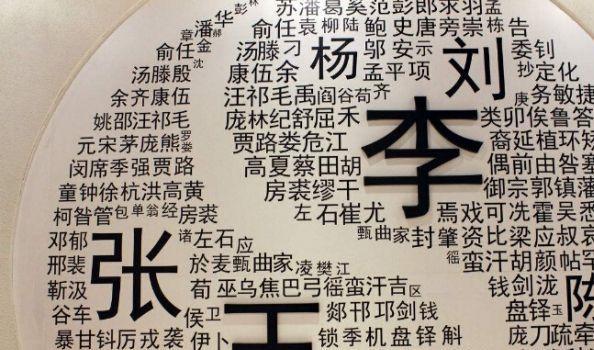 彭 林 苏潘葛奚范彭郎求羽孟
章潘华郝 俞任袁柳陆鲍史唐旁崇栋告
俞任金 汤滕刁 杨 邬安示 刘 委钊
汤滕殷沈 康伍余 孟平项 抄定化
余齐康伍 汪祁毛禹阎谷荀齐 庚务敏捷
姚邵汪祁毛 庞林纪舒屈禾 李 类卯俟鲁答
元宋茅庞熊罗娄 贾路娄危江 裔延植环矫
闵席季强贾路 高夏蔡田胡 偶前由昝塞
童钟徐杭洪高黄 房裘缪干 御宗郭镇潘
柯昝管包单翁经房裘 左石崔尤 焉戏可冼霍吴悉
邓郁 张 诸左石应 甄曲家封肇资比梁应叔哀
邢裴 於麦甄曲家凌樊江 徭蛮汗胡颜帖罕
靳汲 荀巫乌焦巴弓徭蛮汗吉区 钱剑泷 陈
谷车 朱侯卫 王 郯邗邛剑钱 盘铎玉
暴甘钭厉戎袭伊卜 锁季机盘铎斛 庞刀疏牵